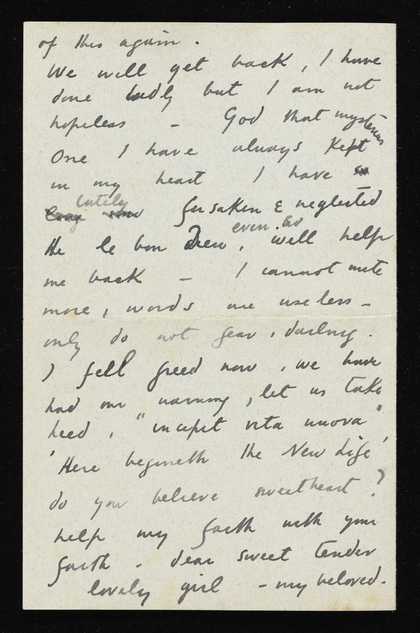 of this again.
We will get back, I have
done badly but I am not
hopeless – God that mysterious
One I have always kept
in my heart I have
lately forsaken & neglected
even so
He le bon Dieu, will help
me back – I cannot write
more, words are useless –
only do not fear, darling.
I fell freed now, we have
had our warning, let us take
heed, "incipit vita nuova"
'Here beginneth the New Life'
do you believe sweetheart?
help my faith with your
faith – dear sweet tender
lovely girl – my beloved.